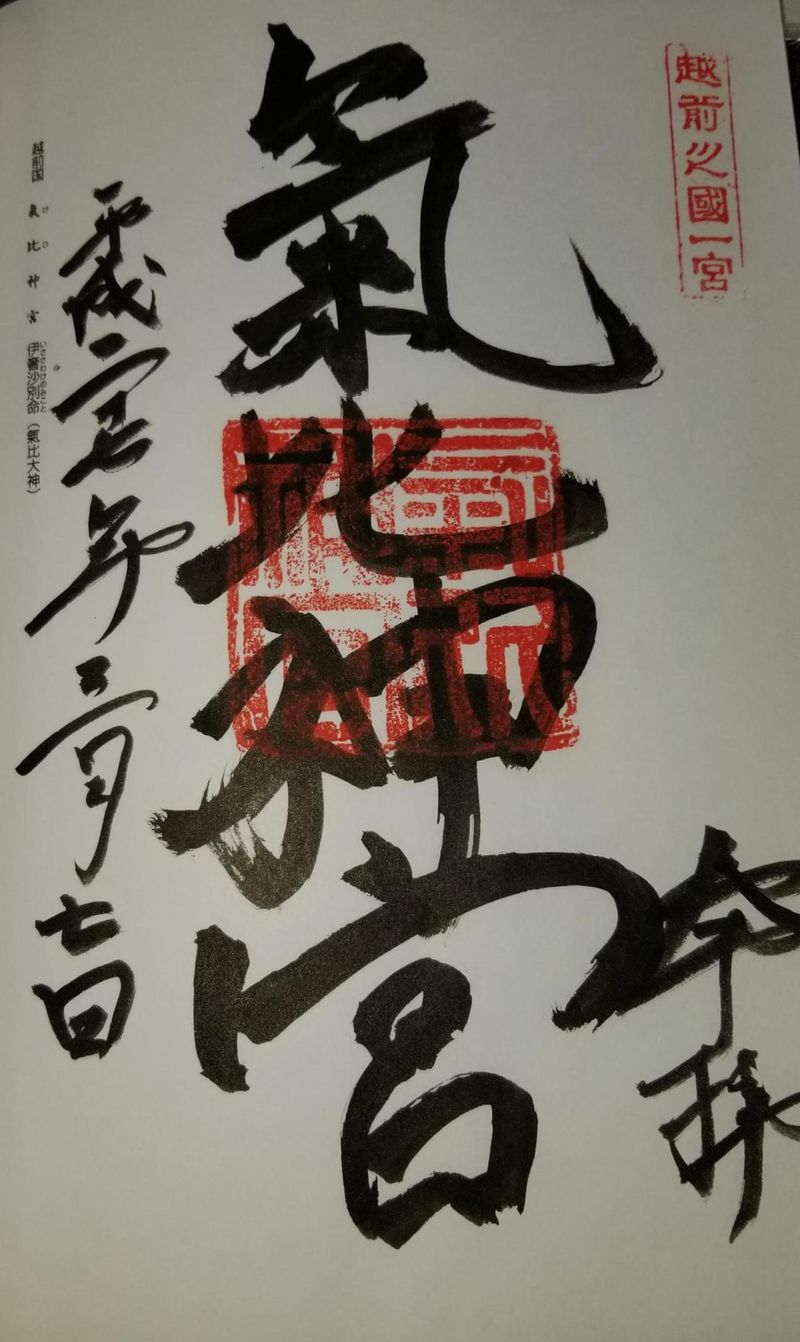 越前之國一宮
奉拝
氣比神宮
平成二十七年三月七日
越前国 氣比神宮 伊奢沙別命（氣比大神）